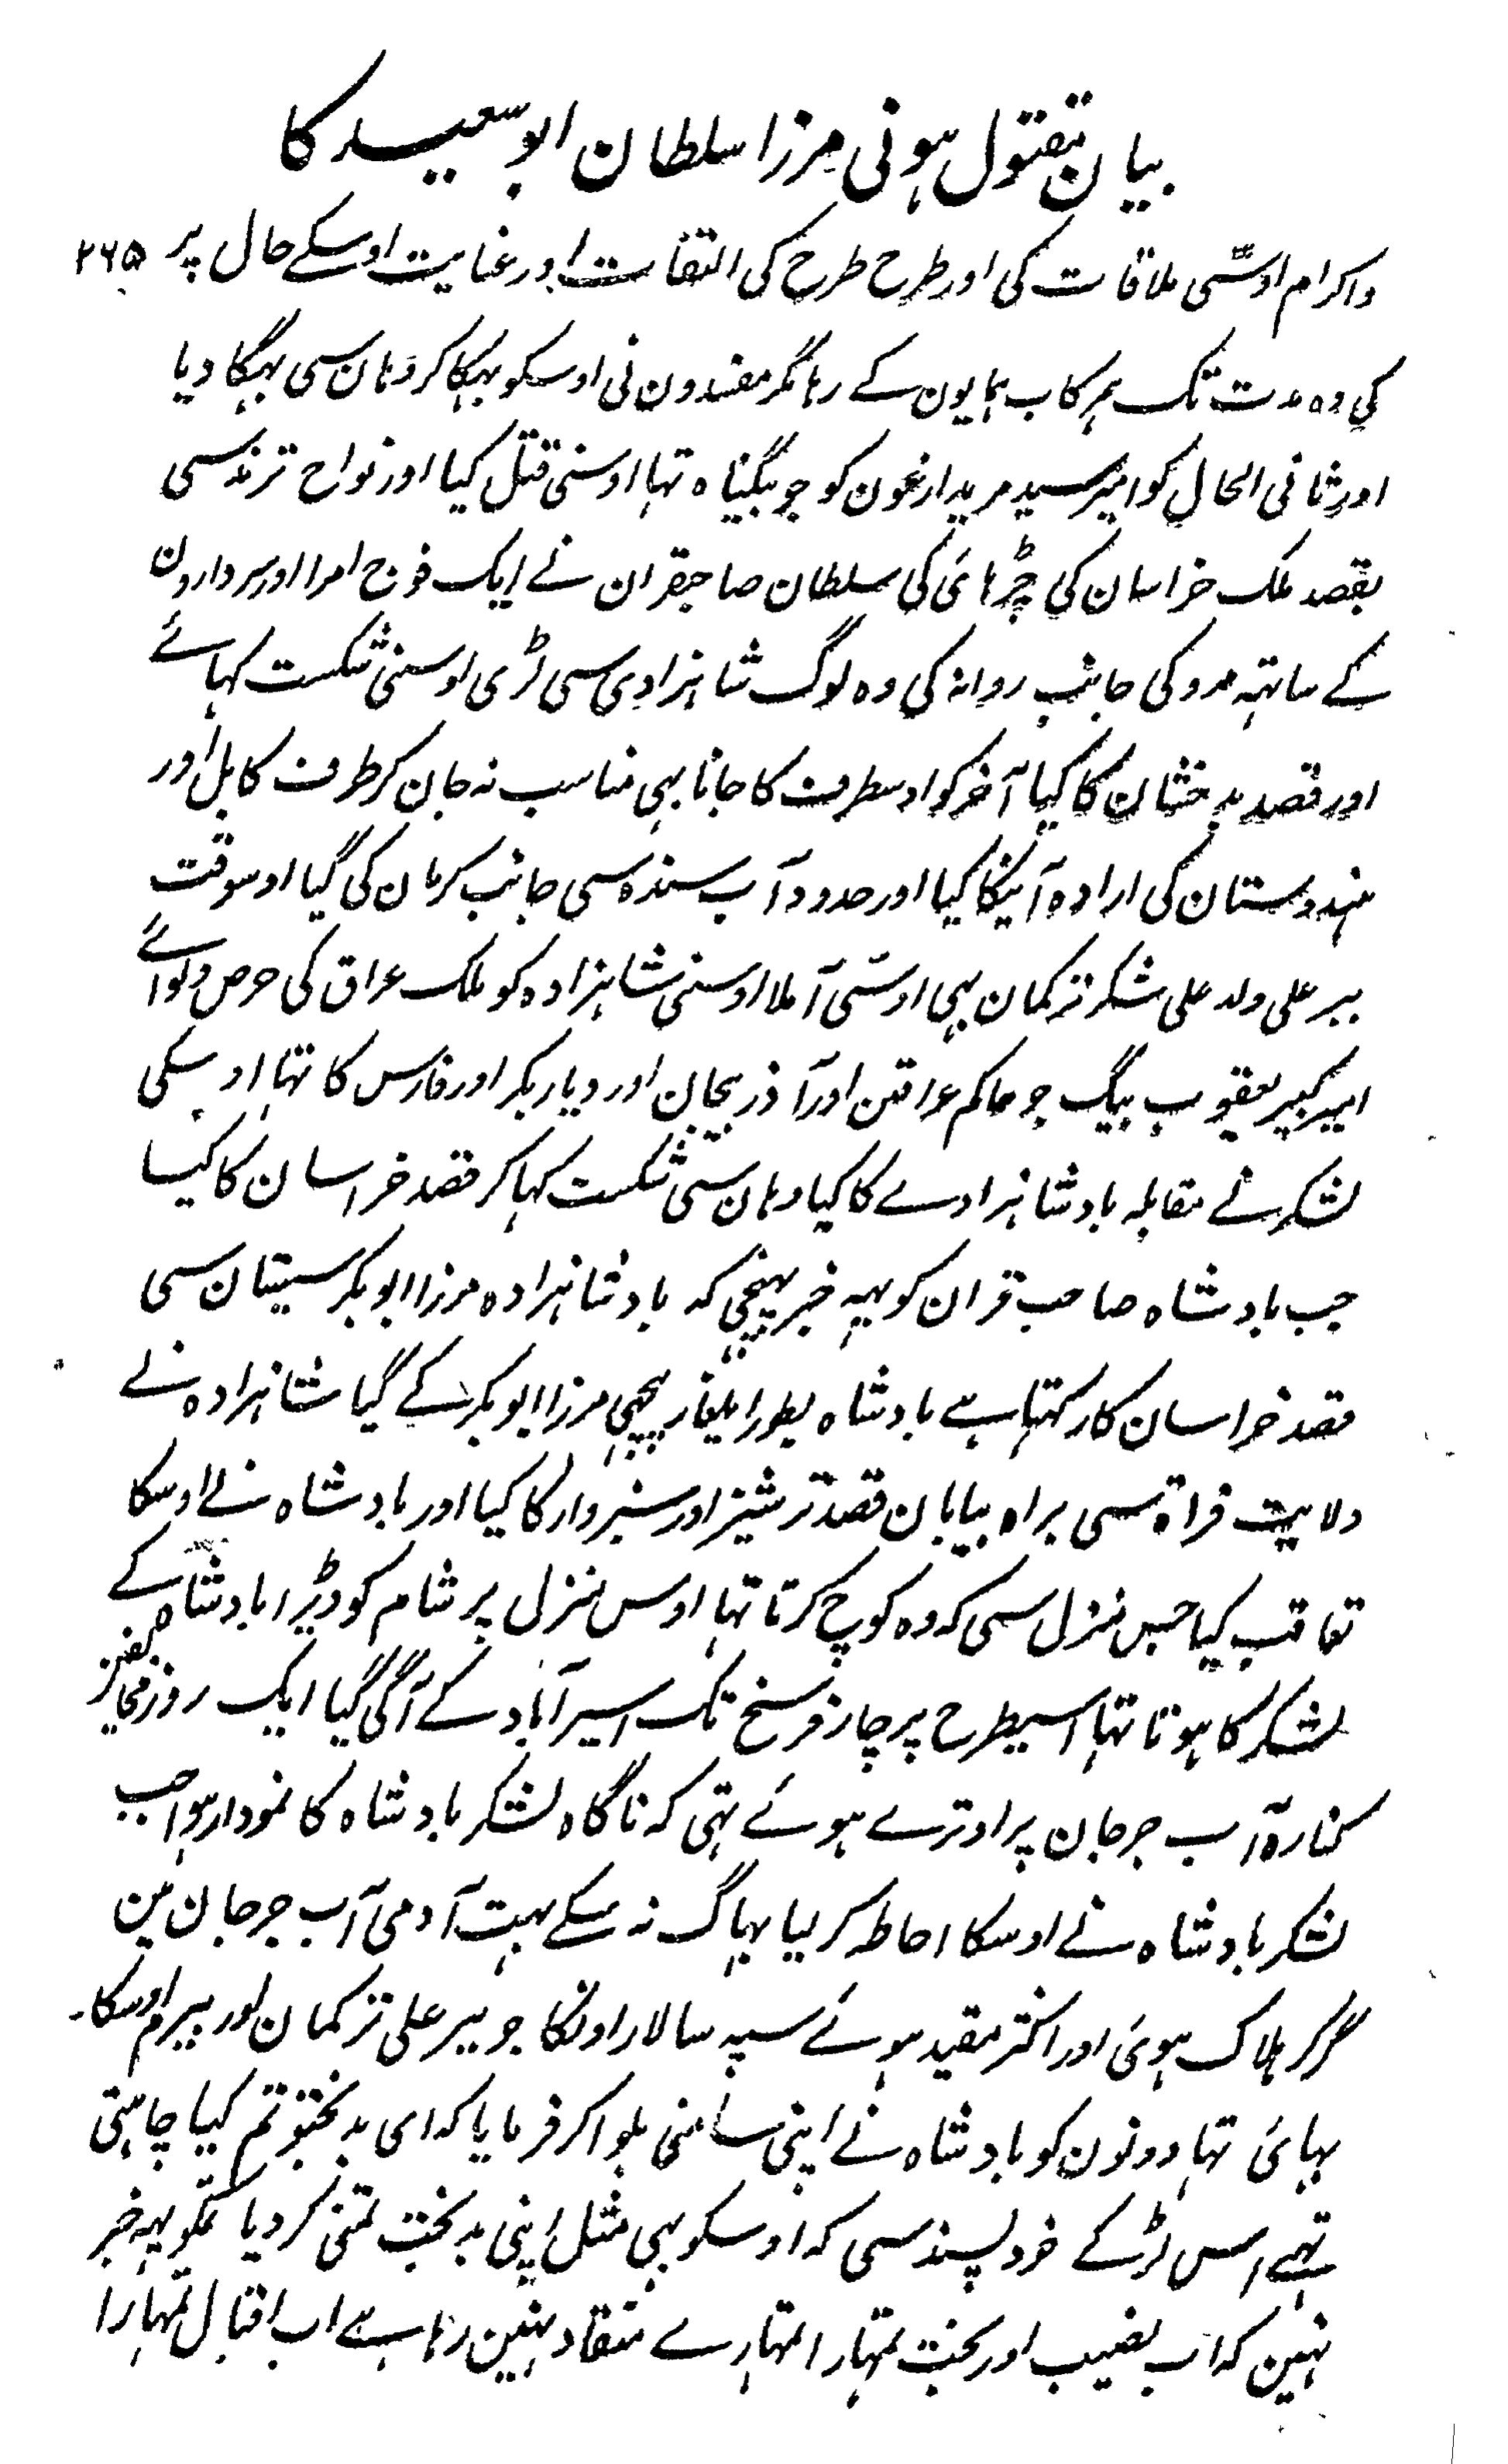 بیان مقتول ہونی مرزا سلطان ابو سعید کا
واکرام اوسّی ملاقات کی اور طرح طرح کی التفات اور عنایت اوسکے حال پر ۲۶۵
کی وہ مدت تک ہمرکاب ہمایون کے رہا مگر مفسدون نی اوسکو بہکا کر وہان سی بہگا دیا
اور ثانی الحال کو امیر سید مرید ارغون کو جو بیگناہ تہا اوسنی قتل کیا اور نواح ترمذ سی
بقصد ملک خراسان کی چڑہائی کی سلطان صاحبقران نے ایک فوج امرا اور سردارون
کے ساتہہ مرو کی جانب روانہ کی وہ لوگ شاہزادی سی لڑی اوسنی شکست کہائے
اور قصد بدخشان کا کیا آخر کو اوسطرف کا جانا بہی مناسب نہ جان کر طرف کابل اور
ہندوستان کی ارادہ آنیکا کیا اور حدود آب سندہ سی جانب کرمان کی گیا اوسوقت
بیر علی ولد علی شکر ترکمان بہی اوسّی آملا اوسنی شاہزادہ کو ملک عراق کی حرص دلوائے
امیر کبیر یعقوب بیگ جو حاکم عراقین اور آذربیجان اور دیاربکر اور فارس کا تہا اوسکی
لشکر نے مقابلہ بادشاہزادے کا کیا وہان سی شکست کہا کر قصد خراسان کا کیا
جب بادشاہ صاحب قران کو یہہ خبر پہنچی کہ بادشاہزادہ مرزا ابوبکر سیستان سی
قصد خراسان کا رکہتا ہے بادشاہ بطور ایلغار پیچہی مرزا ابوبکر کے گیا شاہزادہ نے
ولایت فراہ سی براہ بیابان قصد ترشیز اور سبزوار کا کیا اور بادشاہ نے اوسکا
تعاقب کیا جس منزل سی کہ وہ کوچ کرتا تہا اوس منزل پر شام کو ڈیرا بادشاہ کے
لشکر کا ہوتا تہا اسیطرح پر چار فرسخ تک استرآباد کے آگی گیا ایک روز مخالفین
کنارہ آب جرجان پر اوترے ہوئے تہی کہ ناگاہ لشکر بادشاہ کا نمودار ہوا جب
لشکر بادشاہ نے اوسکا احاطہ کر لیا بہاگ نہ سکے بہت آدمی آب جرجان مین
گرکر ہلاک ہوئی اور اکثر مقید ہوئے سپہ سالار اونکا جو بیر علی ترکمان اور بیرم اوسکا
بہائی تہا دونون کو بادشاہ نے اپنی سامنی بلوا کر فرمایا کہ ای بدبختو تم کیا چاہتی
تہے اس لڑکے خردپسند سی کہ اوسکو بہی مثل اپنی بدبخت تمنی کر دیا تمکو یہہ خبر
نہین کہ اب نصیب اور بخت تمہارا تمہارے منقاد نہین رہا ہے اب اقبال تمہارا